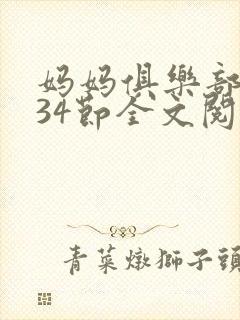 妈妈俱樂部
34節全文閱
青菜燉獅子頭